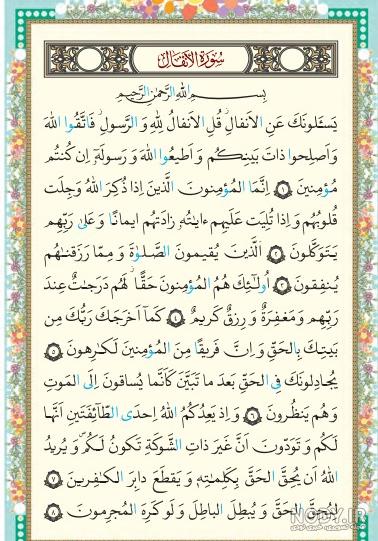 سُورَةُ الأَنفَالِ
بِسمِ اللهِ الرَّحمٰنِ الرَّحيمِ
يَسـَٔلونَكَ عَنِ الاَنفالِ قُلِ الاَنفالُ لِلّٰهِ وَ الرَّسولِ فَاتَّقُوا اللهَ
وَ اَصلِحوا ذاتَ بَينِكُم وَ اَطيعُوا اللهَ وَ رَسولَهُ اِن كُنتُم
مُؤمِنينَ ١ اِنَّمَا المُؤمِنونَ الَّذينَ اِذا ذُكِرَ اللهُ وَجِلَت
قُلوبُهُم وَ اِذا تُلِيَت عَلَيهِم ءايٰتُهُ زادَتهُم ايمانًا وَ عَلىٰ رَبِّهِم
يَتَوَكَّلونَ ٢ اَلَّذينَ يُقيمونَ الصَّلوٰةَ وَ مِمّا رَزَقنٰهُم
يُنفِقونَ ٣ اُولٰئِكَ هُمُ المُؤمِنونَ حَقًّا لَهُم دَرَجٰتٌ عِندَ
رَبِّهِم وَ مَغفِرَةٌ وَ رِزقٌ كَريمٌ ٤ كَما اَخرَجَكَ رَبُّكَ مِن
بَيتِكَ بِالحَقِّ وَ اِنَّ فَريقًا مِنَ المُؤمِنينَ لَكٰرِهونَ ٥
يُجادِلونَكَ فِي الحَقِّ بَعدَ ما تَبَيَّنَ كَاَنَّما يُساقونَ اِلَى المَوتِ
وَ هُم يَنظُرونَ ٦ وَ اِذ يَعِدُكُمُ اللهُ اِحدَى الطّائِفَتَينِ اَنَّها
لَكُم وَ تَوَدّونَ اَنَّ غَيرَ ذاتِ الشَّوكَةِ تَكونُ لَكُم وَ يُريدُ
اللهُ اَن يُحِقَّ الحَقَّ بِكَلِمٰتِهِ وَ يَقطَعَ دابِرَ الكٰفِرينَ ٧
لِيُحِقَّ الحَقَّ وَ يُبطِلَ الباطِلَ وَ لَو كَرِهَ المُجرِمونَ ٨
NODY.IR